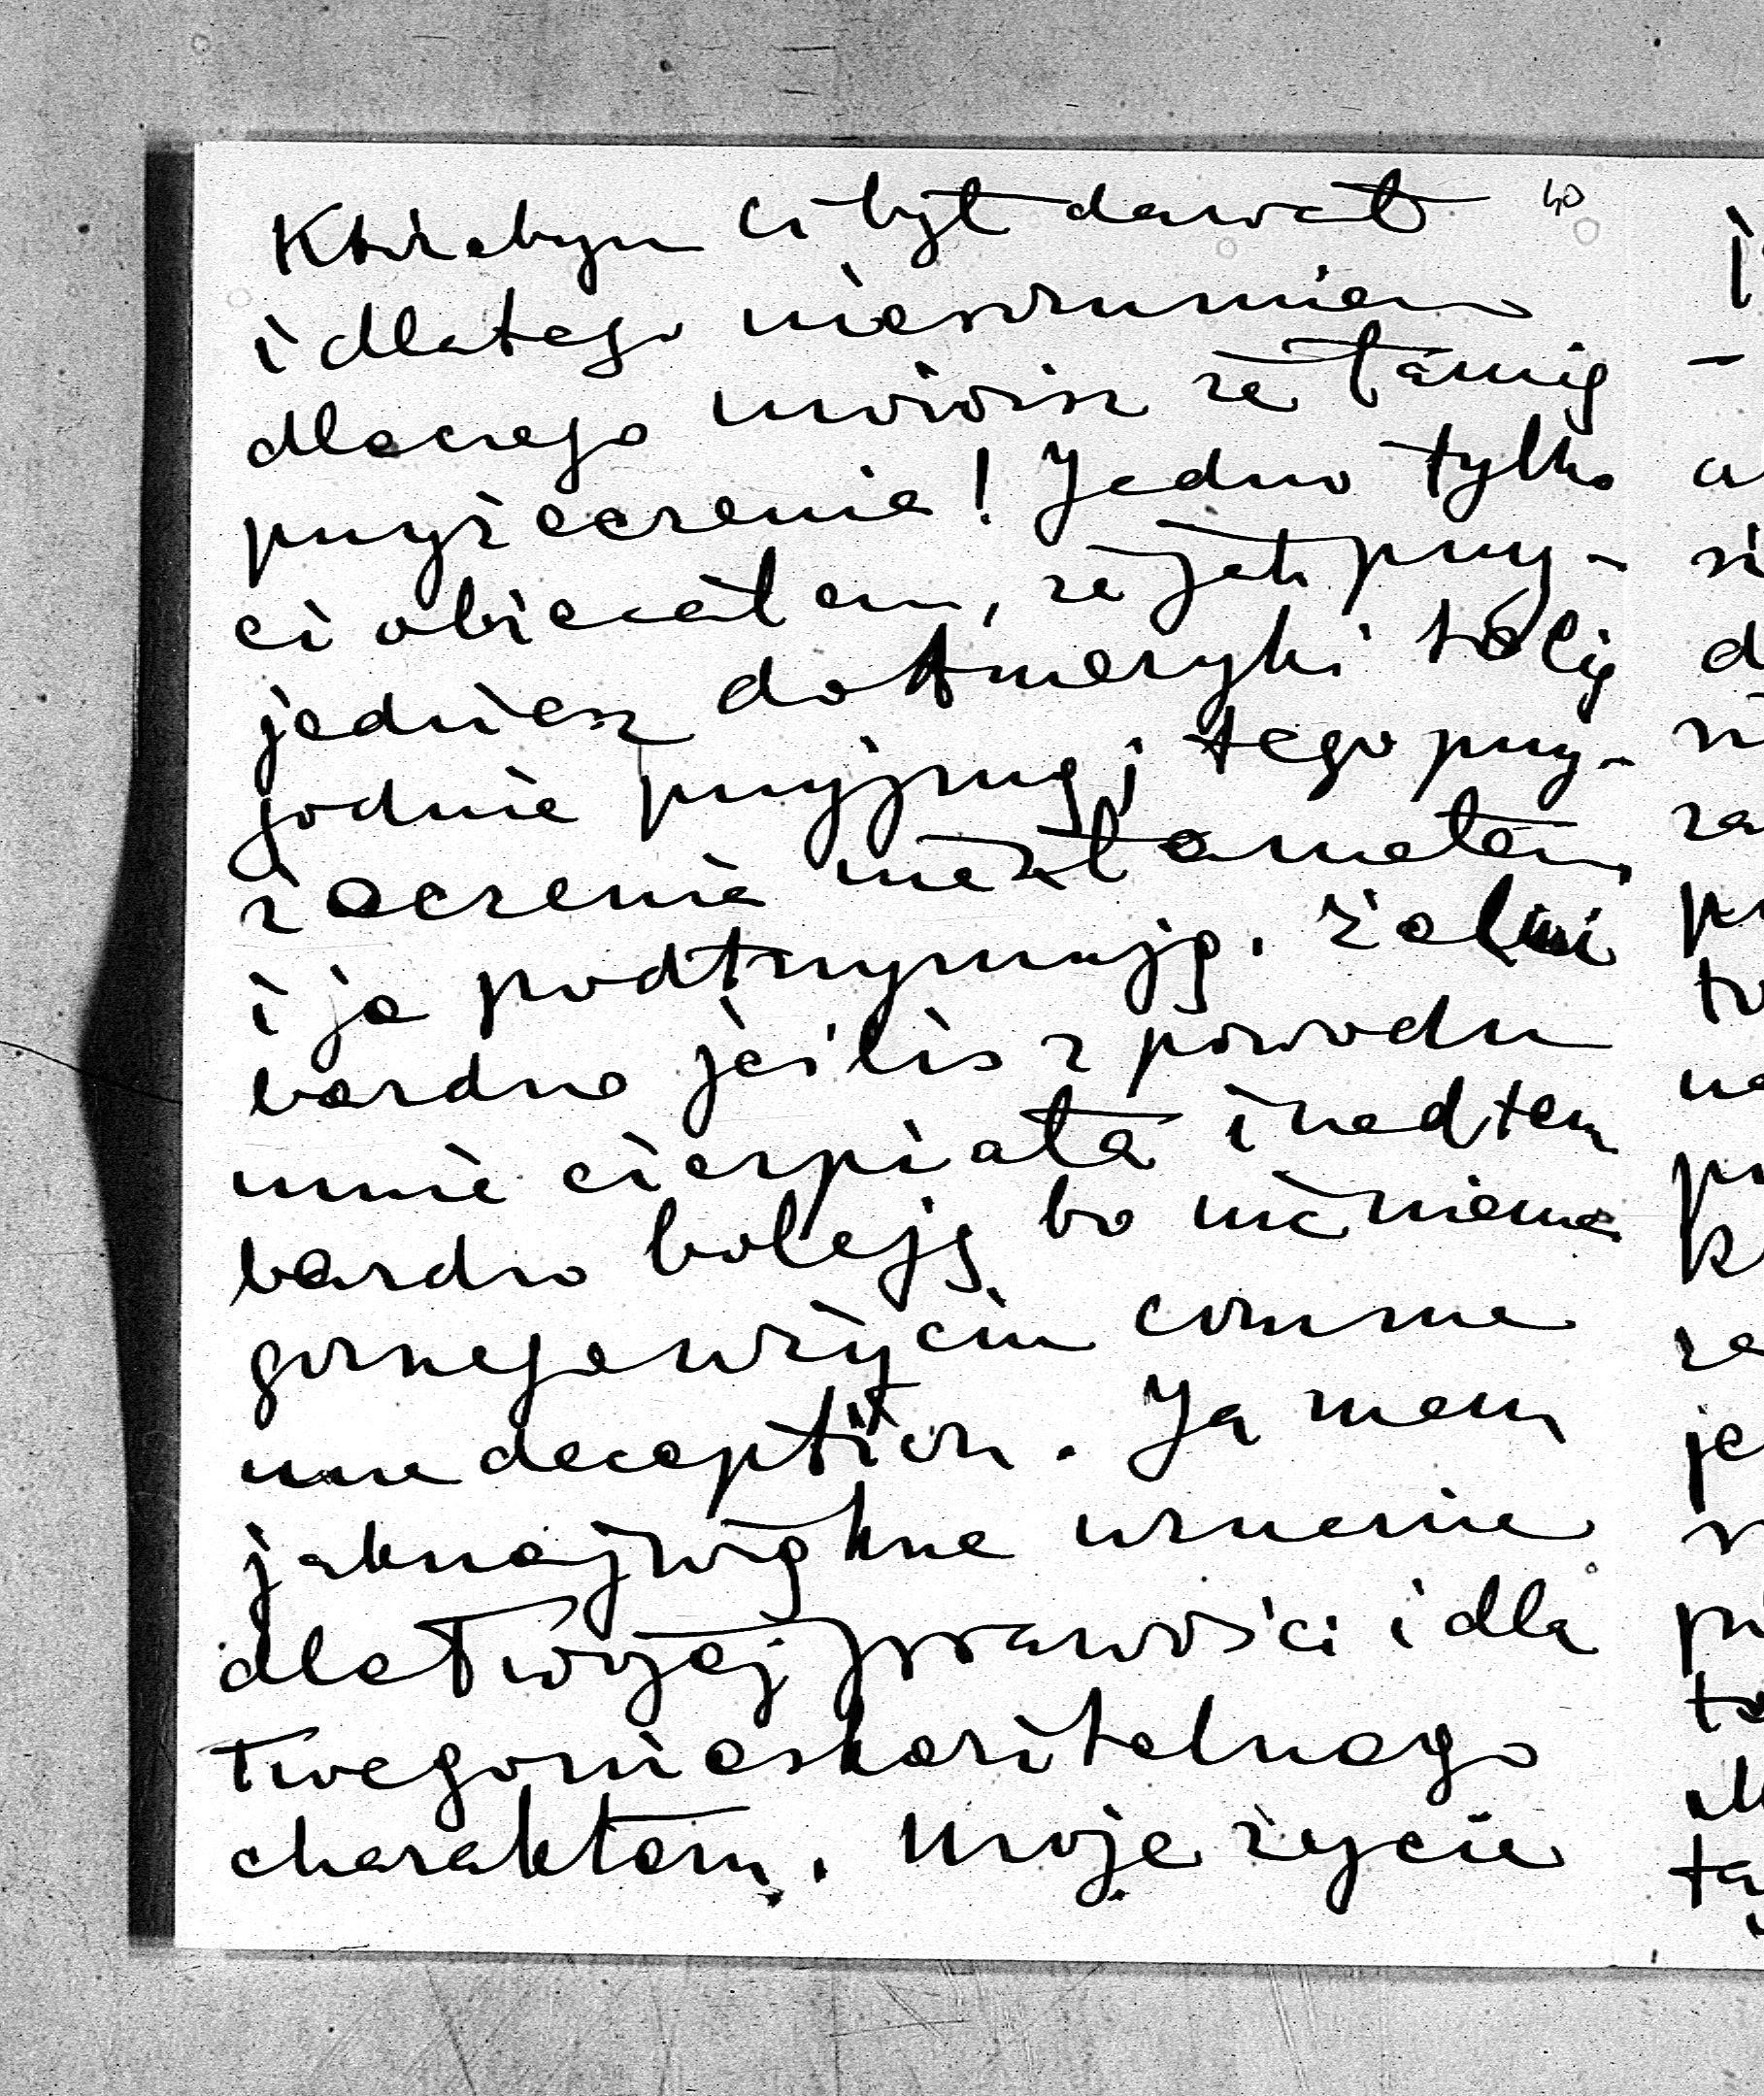 którebym ci był dawał 40
i dlatego nierozumiem
dlaczego mówisz że łamię
przyżeczenie! Jedno tylko
ci obiecałem, że jeżli przy-
jedziesz do Ameryki to Cię
godnie przyjmę i tego przy-
żeczenia niezłamałem
i ją podtrzymuję. Żal mi
bardzo jeśliś z powodu
mnie cierpiała i nad tem
bardzo boleję bo nic niema
gorszego w życiu comme
une deception. Ja mam
jaknajwiększe uznanie
dla Twojej prawości i dla
Twego nieskazitelnego
charakteru. Moje życie